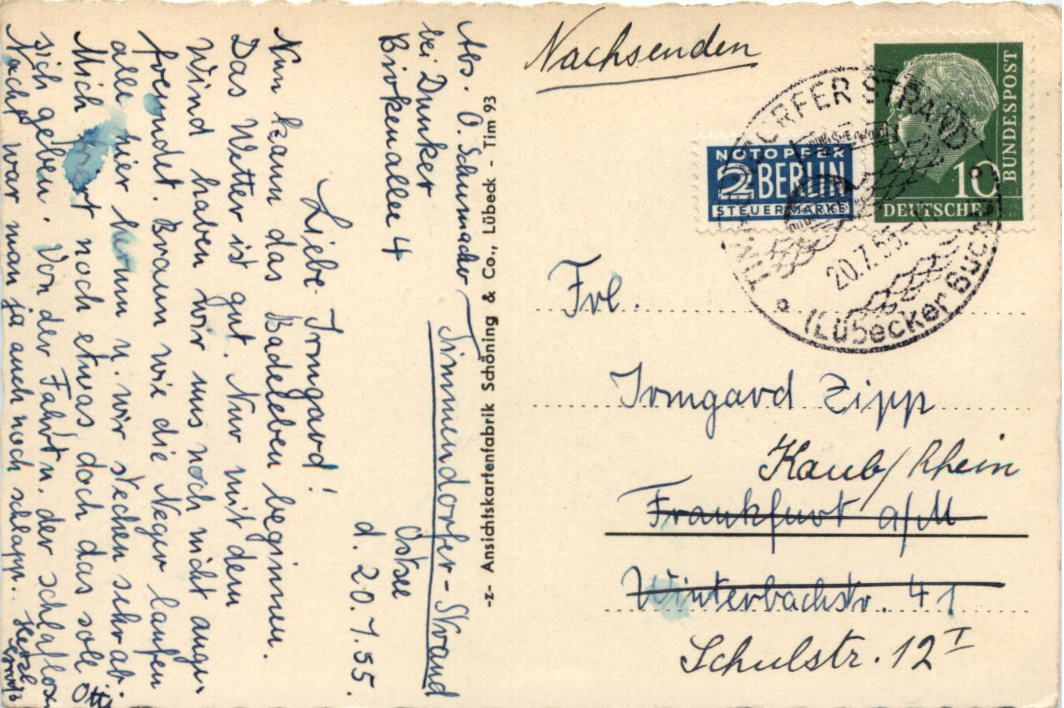 Abs. O. Schumacher
bei Dunker
Birkenallee 4
Timmendorfer-Strand
Ostsee
d. 20.7.55.
Liebe Irmgard!
Nun kann das Badeleben beginnen.
Das Wetter ist gut. Nur mit dem
Wind haben wir uns noch nicht ange-
freundt. Braun wie die Neger laufen
alle hier herum u. wir stechen sehr ab.
Mich noch etwas doch das soll
sich geben. Von der Fahrt u. der schlaflosen
Nacht war man ja auch noch schlapp. Herzl.
Otti
-z- Ansichtskartenfabrik Schöning & Co., Lübeck - Tim 93
Nachsenden
NOTOPFER
2 BERLIN
STEUERMARKE
10
DEUTSCHE
BUNDESPOST
DORFER STRAND
20.7.55
(Lübecker Buch
Frl.
Irmgard Zipp
Kaub/Rhein
Frankfurt a/M
Winterbachstr. 41
Schulstr. 12 I